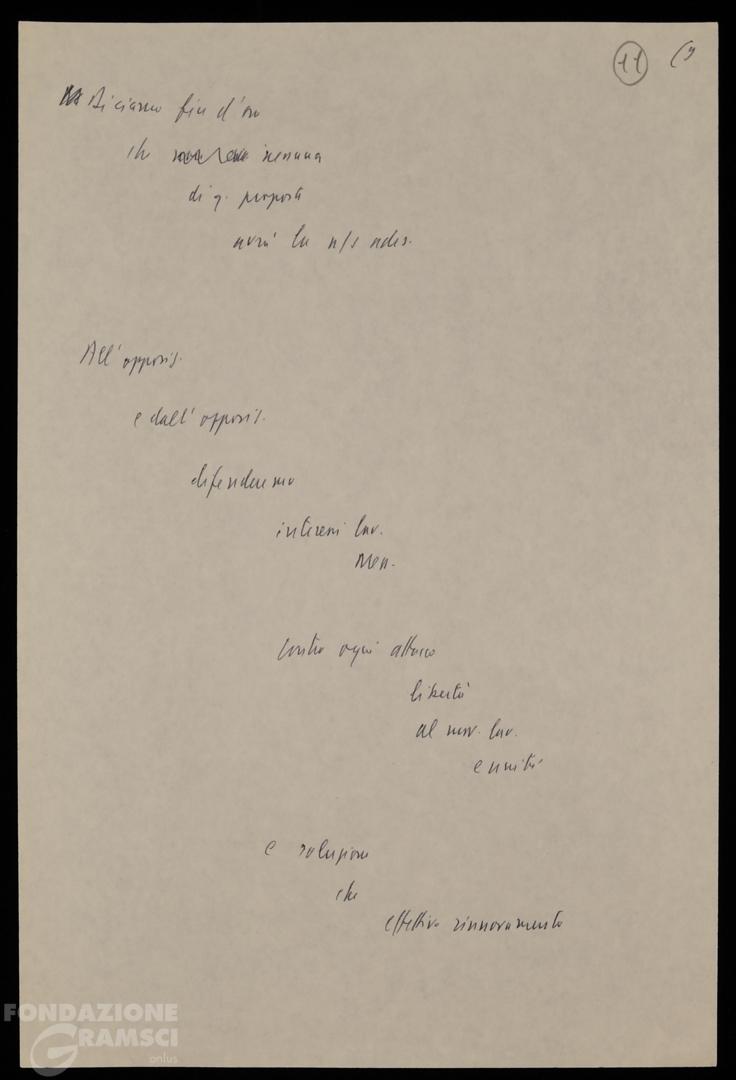 11 (9
Diciamo fin d'ora
che nessuna
di q. proposte
avrà la n/s ades.
All'opposiz.
e dall'opposiz.
difenderemo
interessi lav.
Mer.
contro ogni attacco
libertà
al mov. lav.
e unità
e soluzione
che
effettivo rinnovamento
FONDAZIONE
GRAMSCI
onlus